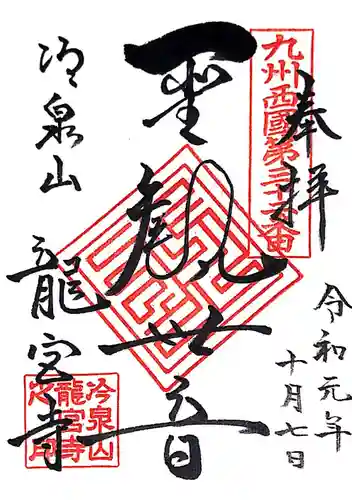 奉拝
九州西國第三十二番
令和元年
十月七日
聖観世音
冷泉山
龍宮寺
冷泉山
龍宮寺